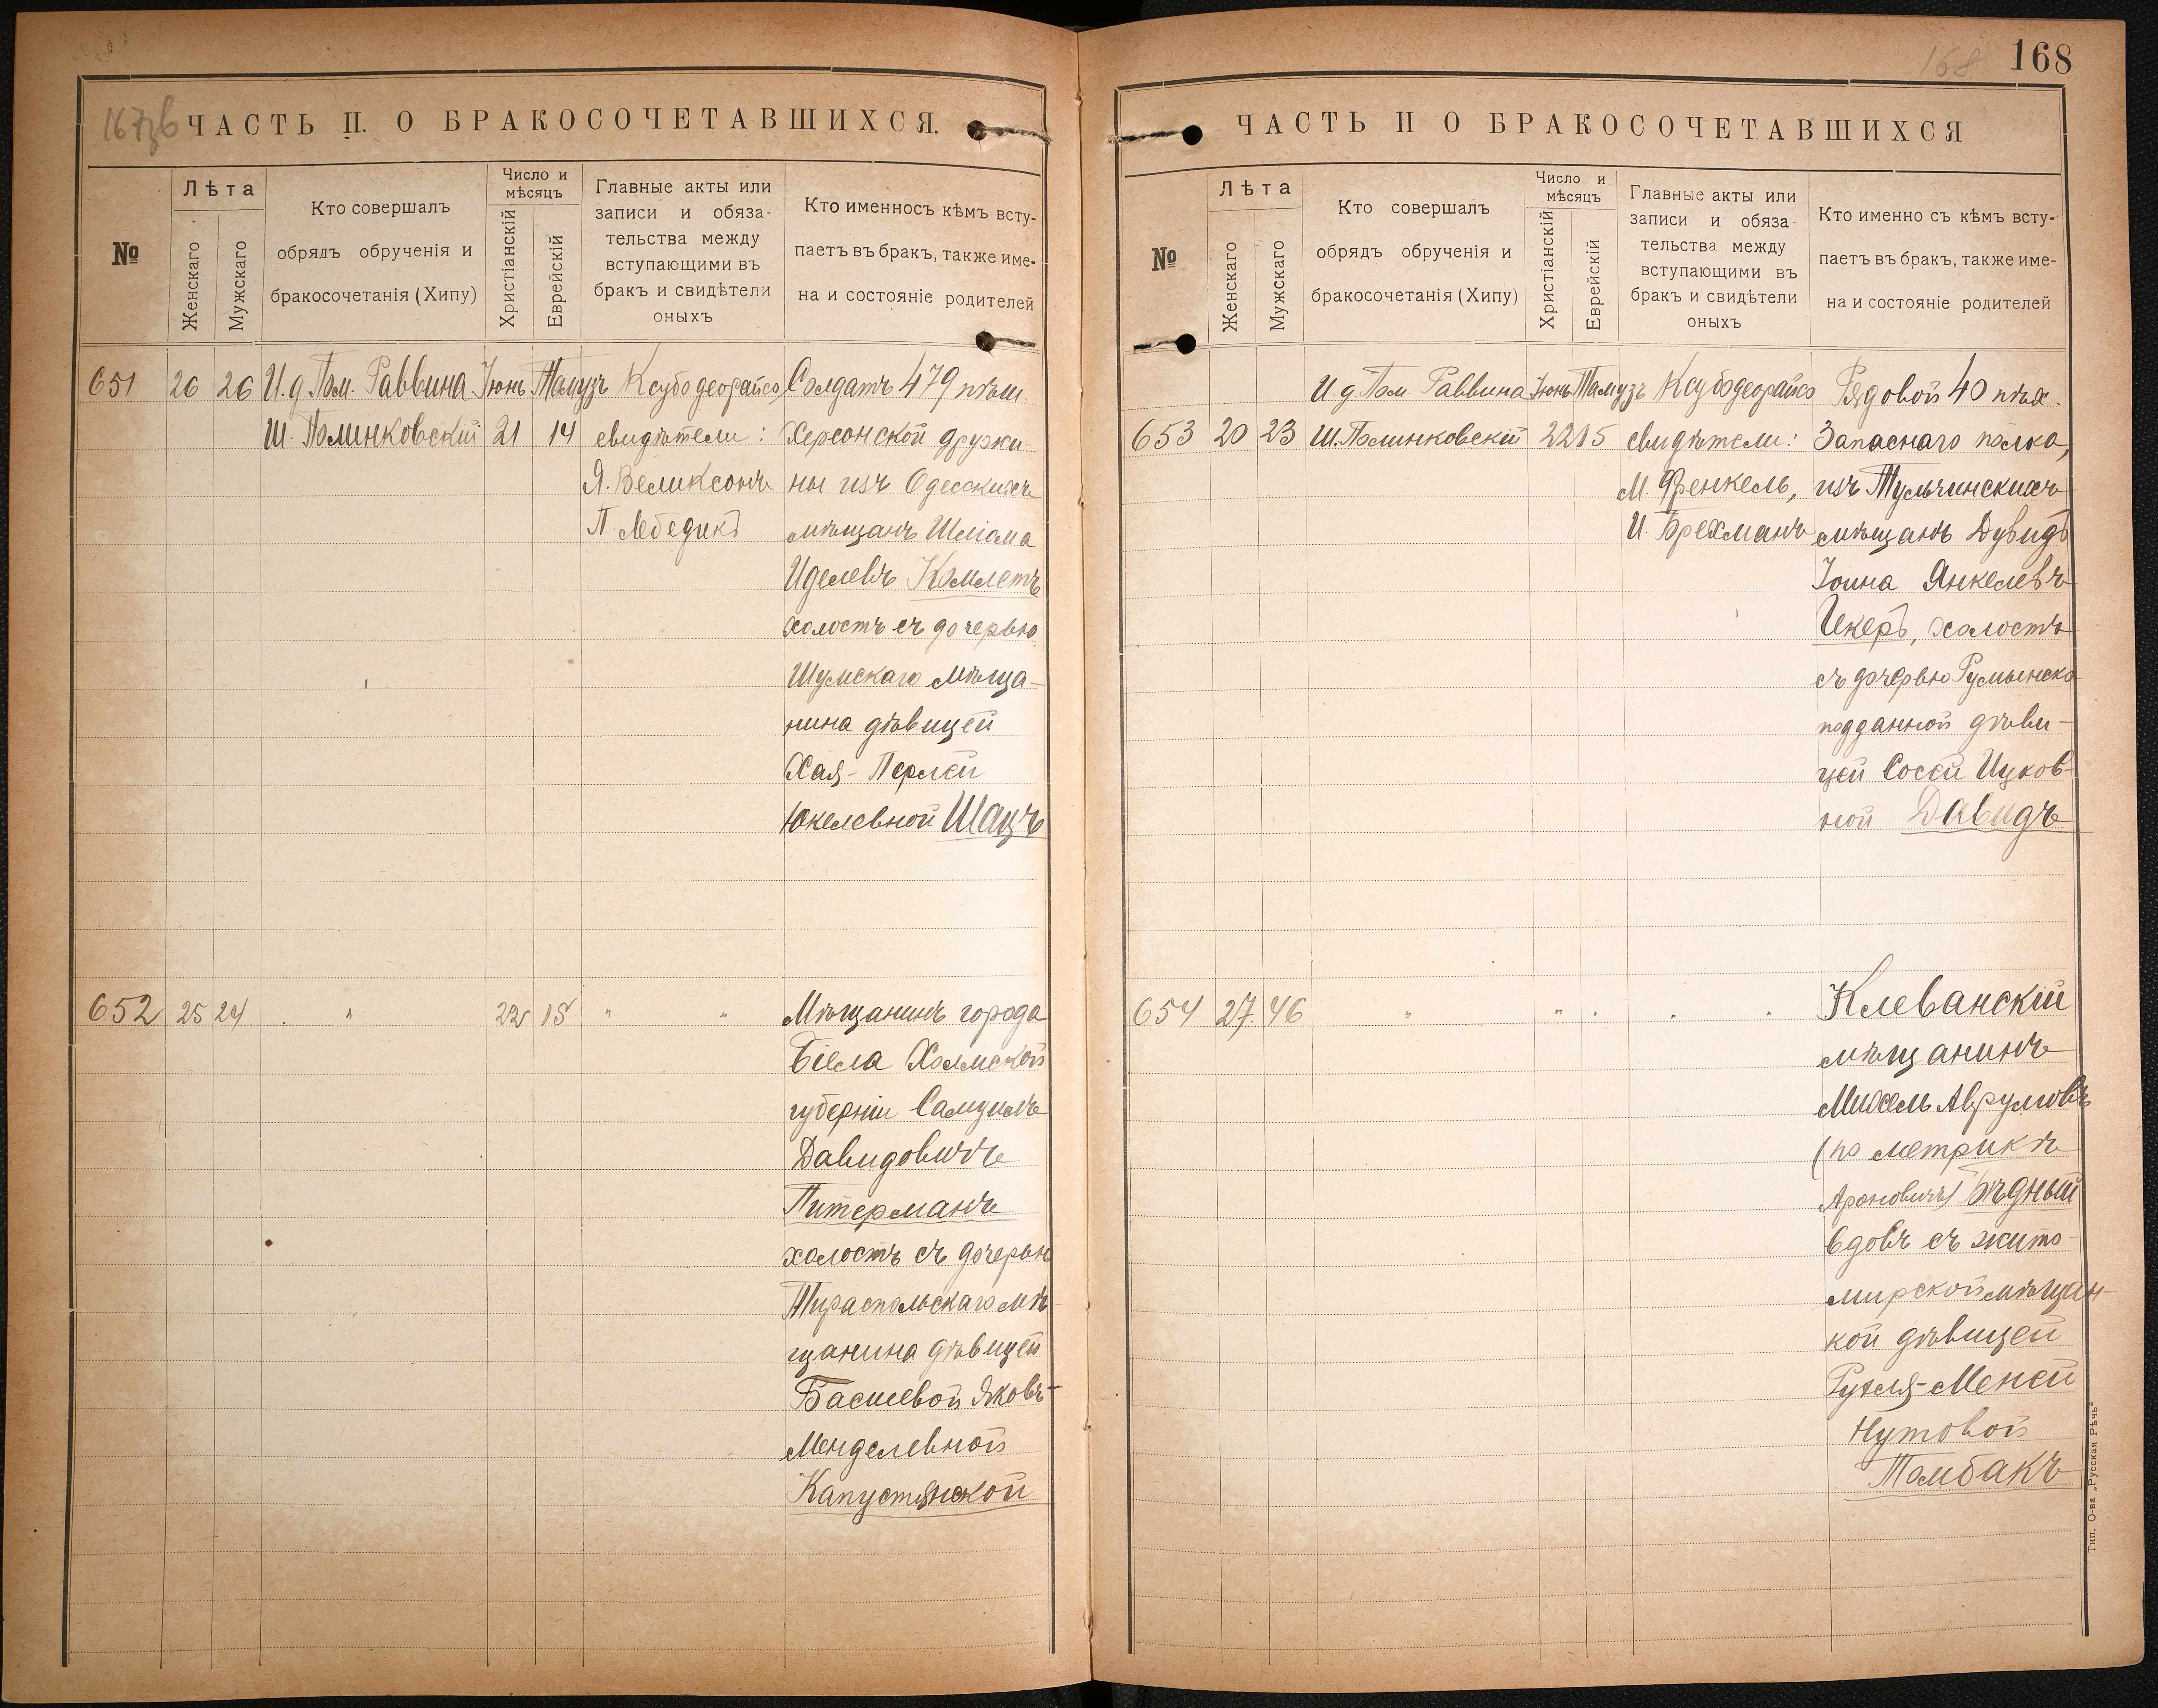 167 об
ЧАСТЬ II. О БРАКОСОЧЕТАВШИХСЯ.
№
Лѣта
Женскаго
Мужскаго
Кто совершалъ
обрядъ обрученія и
бракосочетанія (Хипу)
Число и
мѣсяцъ
Христіанскій
Еврейскій
Главные акты или
записи и обяза-
тельства между
вступающими въ
бракъ и свидѣтели
оныхъ
Кто именносъ кѣмъ всту-
паетъ въ бракъ, также име-
на и состояніе родителей
651 26 26 И. д. Пом. Раввина Іюнь Тамузъ Ксубо деорайсо Солдатъ 479 пѣш.
Ш. Полинковскій 21 14 свидѣтели: Херсонской дружи
Я. Великсонъ ны изъ Одесскихъ
П. Лебедикъ мѣщанъ Шліома
Иделевъ Комлетъ
холостъ съ дочерью
Шумскаго мѣща-
нина дѣвицей
Хая-Перлей
Юкелевной Шацъ
652 25 24 " 22 15 " " Мѣщанинъ города
Бѣела Холмской
губерніи Самуилъ
Давидовичъ
Питерманъ
холостъ съ дочерью
Тираспольскаго мѣ-
щанина дѣвицей
Басшевой Яковъ-
Менделевной
Капустянской
168
168
ЧАСТЬ II О БРАКОСОЧЕТАВШИХСЯ
№
Лѣта
Женскаго
Мужскаго
Кто совершалъ
обрядъ обрученія и
бракосочетанія (Хипу)
Число и
мѣсяцъ
Христіанскій
Еврейскій
Главные акты или
записи и обяза-
тельства между
вступающими въ
бракъ и свидѣтели
оныхъ
Кто именно съ кѣмъ всту-
паетъ въ бракъ, также име-
на и состояніе родителей
И. д. Пом. Раввина Іюнь Тамузъ Ксубо деорайсо Рядовой 40 пѣх.
653 20 23 Ш. Полинковскій 22 15 свидѣтели: Запаснаго полка,
М. Френкель, изъ Тульчинскихъ
И. Брехманъ мѣщанъ Дувидъ
Іоина Янкелевъ
Цкеръ, холостъ
съ дочерью Румынско
подданной дѣви-
цей Сосей Ицков-
ной Давидъ
654 27 46 " " " " " Клеванскій
мѣщанинъ
Михель Аврумовъ
(по метрикѣ
Ароновичъ) Бѣдный
вдовъ съ жито-
мирской мѣщан-
кой дѣвицей
Рухля-Меней
Нутовой
Томбакъ
Тип. О-ва „Русская Рѣчь“